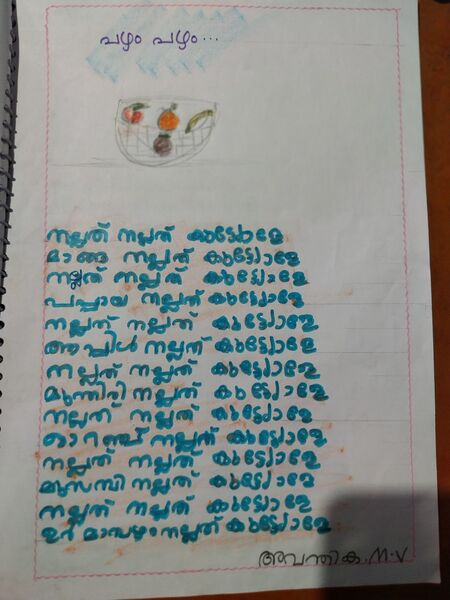 പഴം പഴം...
നല്ലത് നല്ലത് കൂട്ടോളേ
മാങ്ങ നല്ലത് കൂട്ടോളേ
നല്ലത് നല്ലത് കൂട്ടോളേ
പപ്പായ നല്ലത് കൂട്ടോളേ
നല്ലത് നല്ലത് കൂട്ടോളേ
ആപ്പിൾ നല്ലത് കൂട്ടോളേ
നല്ലത് നല്ലത് കൂട്ടോളേ
മുന്തിരി നല്ലത് കൂട്ടോളേ
നല്ലത് നല്ലത് കൂട്ടോളേ
ഓറഞ്ച് നല്ലത് കൂട്ടോളേ
നല്ലത് നല്ലത് കൂട്ടോളേ
മുസമ്പി നല്ലത് കൂട്ടോളേ
നല്ലത് നല്ലത് കൂട്ടോളേ
നല്ലത് കൂട്ടോളേ
അവന്തിക.M.V